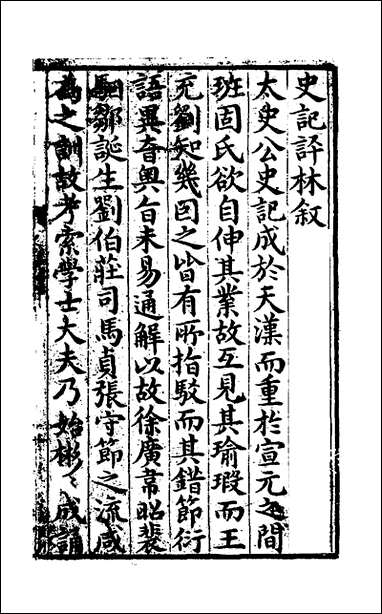 史記評林叙
太史公史記成於天漢而重於宣元之間
班固氏欲自伸其業故互見其瑜瑕而王
充劉知幾因之皆有所指駁而其錯節衍
語異音奧旨未易通解以故徐廣韋昭裴
駰鄒誕生劉伯莊司馬貞張守節之流咸
為之訓故考索學士大夫乃始彬〻成誦